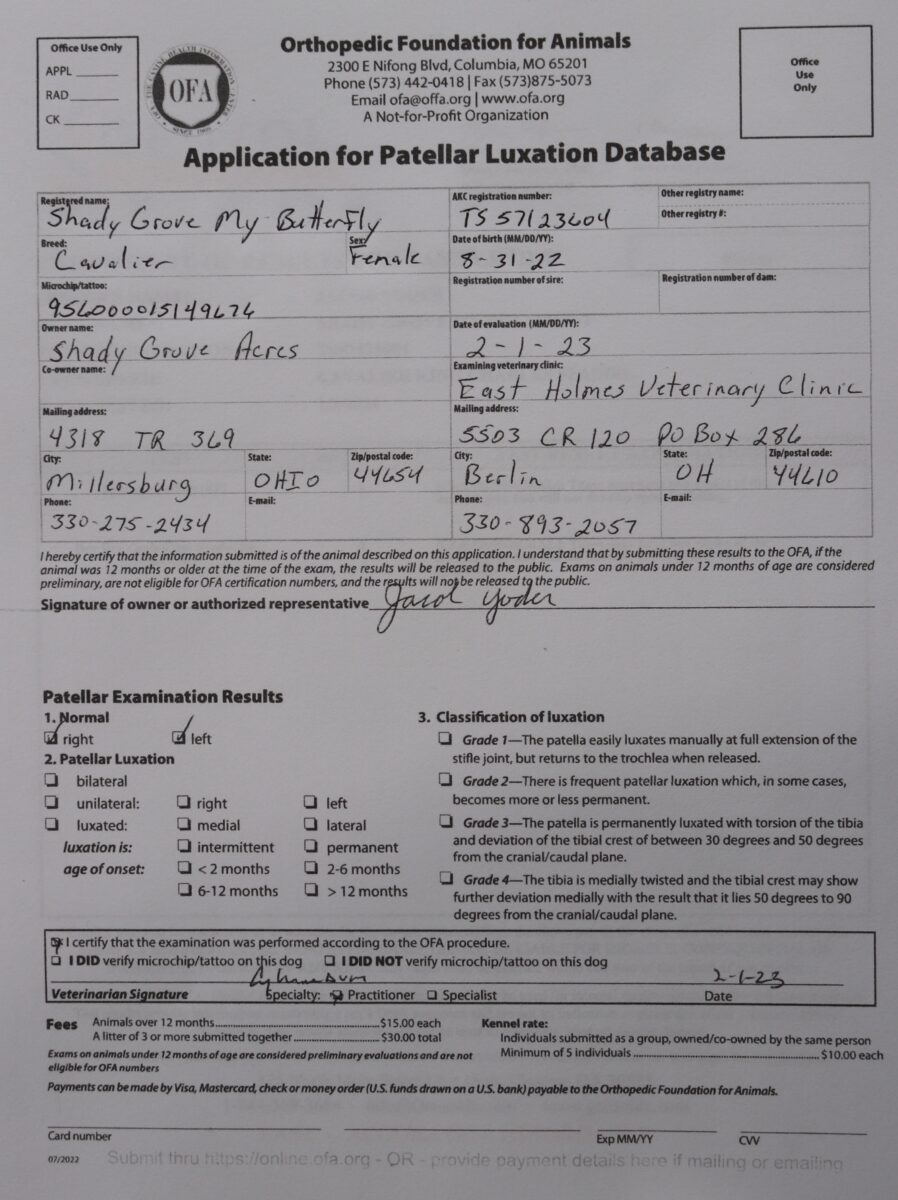 Office Use Only
APPL
RAD
CK
OFA
Orthopedic Foundation for Animals
2300 E Nifong Blvd, Columbia, MO 65201
Phone (573) 442-0418 | Fax (573)875-5073
Email ofa@offa.org | www.ofa.org
A Not-for-Profit Organization
Office
Use
Only
Application for Patellar Luxation Database
Registered name:
Shady Grove My Butterfly
AKC registration number:
TS 57123604
Other registry name:
Other registry #:
Breed:
Cavalier
Sex:
Female
Date of birth (MM/DD/YY):
8-31-22
Microchip/tattoo:
956000015149674
Registration number of sire:
Registration number of dam:
Owner name:
Shady Grove Acres
Date of evaluation (MM/DD/YY):
2-1-23
Co-owner name:
Examining veterinary clinic:
East Holmes Veterinary Clinic
Mailing address:
4318 TR 369
Mailing address:
5503 CR 120 PO Box 286
City:
Millersburg
State:
OHIO
Zip/postal code:
44654
City:
Berlin
State:
OH
Zip/postal code:
44610
Phone:
330-275-2434
E-mail:
Phone:
330-893-2057
E-mail:
I hereby certify that the information submitted is of the animal described on this application. I understand that by submitting these results to the OFA, if the
animal was 12 months or older at the time of the exam, the results will be released to the public. Exams on animals under 12 months of age are considered
preliminary, are not eligible for OFA certification numbers, and the results will not be released to the public.
Signature of owner or authorized representative Yoder
Patellar Examination Results
1. Normal
right left
2. Patellar Luxation
bilateral
unilateral: right left
luxated: medial lateral
luxation is: intermittent permanent
age of onset: < 2 months 2-6 months
6-12 months > 12 months
3. Classification of luxation
Grade 1—The patella easily luxates manually at full extension of the
stifle joint, but returns to the trochlea when released.
Grade 2—There is frequent patellar luxation which, in some cases,
becomes more or less permanent.
Grade 3—The patella is permanently luxated with torsion of the tibia
and deviation of the tibial crest of between 30 degrees and 50 degrees
from the cranial/caudal plane.
Grade 4—The tibia is medially twisted and the tibial crest may show
further deviation medially with the result that it lies 50 degrees to 90
degrees from the cranial/caudal plane.
I certify that the examination was performed according to the OFA procedure.
I DID verify microchip/tattoo on this dog I DID NOT verify microchip/tattoo on this dog
2-1-23
Veterinarian Signature Specialty: Practitioner Specialist Date
Fees Animals over 12 months $15.00 each
A litter of 3 or more submitted together $30.00 total
Exams on animals under 12 months of age are considered preliminary evaluations and are not
eligible for OFA numbers
Kennel rate:
Individuals submitted as a group, owned/co-owned by the same person
Minimum of 5 individuals $10.00 each
Payments can be made by Visa, Mastercard, check or money order (U.S. funds drawn on a U.S. bank) payable to the Orthopedic Foundation for Animals.
Card number Exp MM/YY CVV
07/2022 Submit thru https://online.ofa.org - OR - provide payment details here if mailing or emailing